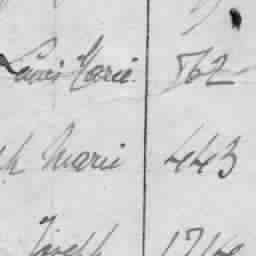 Louis Marie 562
h Marie 443
Joseph 1714